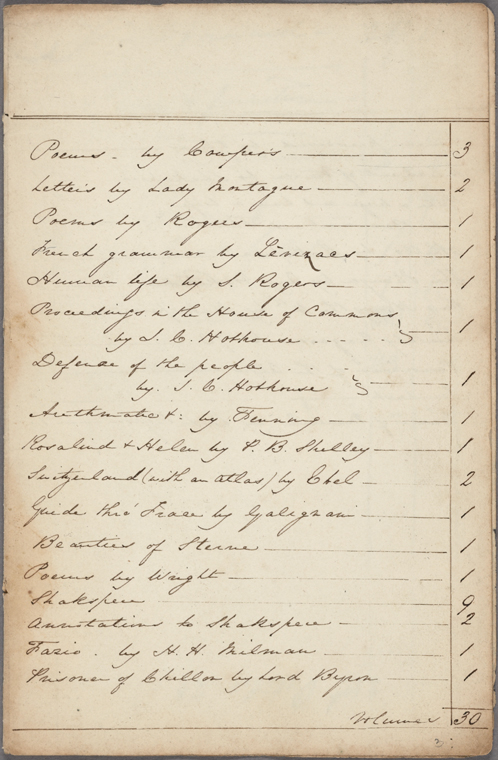 Poems - by Cowper's 3
Letters by Lady Montague 2
Poems by Rogers 1
French grammar by Levizacs 1
Human life by S. Rogers 1
Proceedings in the House of Commons
by J. C. Hobhouse 1
Defence of the people
by J. C. Hobhouse 1
Arithmatic &: by Fenning 1
Rosalind & Helen by P. B. Shelley 1
Switzerland (with an atlas) by Ebel 2
Guide thro' France by Galignani 1
Beauties of Sterne 1
Poems by Wright 1
Shakspere 9
Annotations to Shakspere 2
Fazio - by H. H. Milman 1
Prisoner of Chillon by Lord Byron 1
Volumes 30